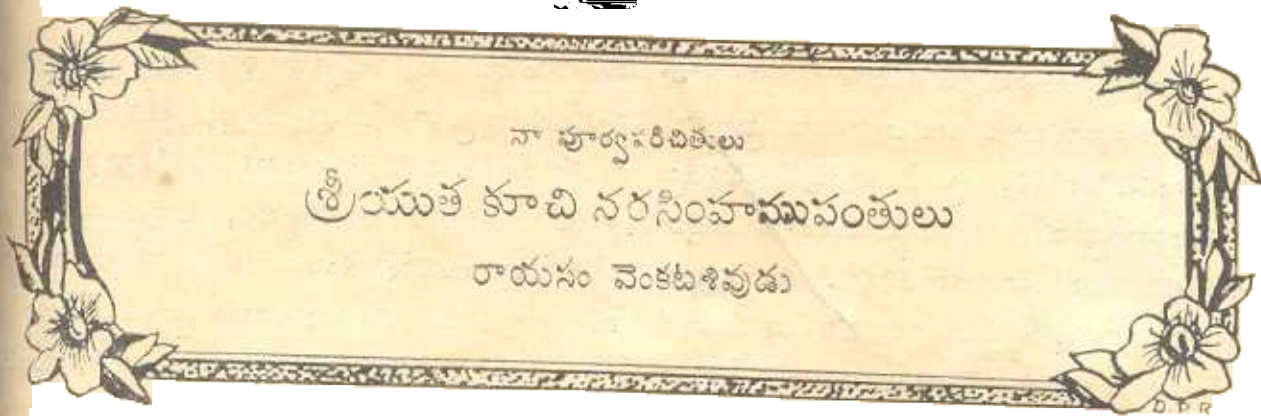 నా పూర్వపరిచితులు
శ్రీయుత కూచి నరసింహముపంతులు
రాయసం వెంకటశివుడు
D.P.R